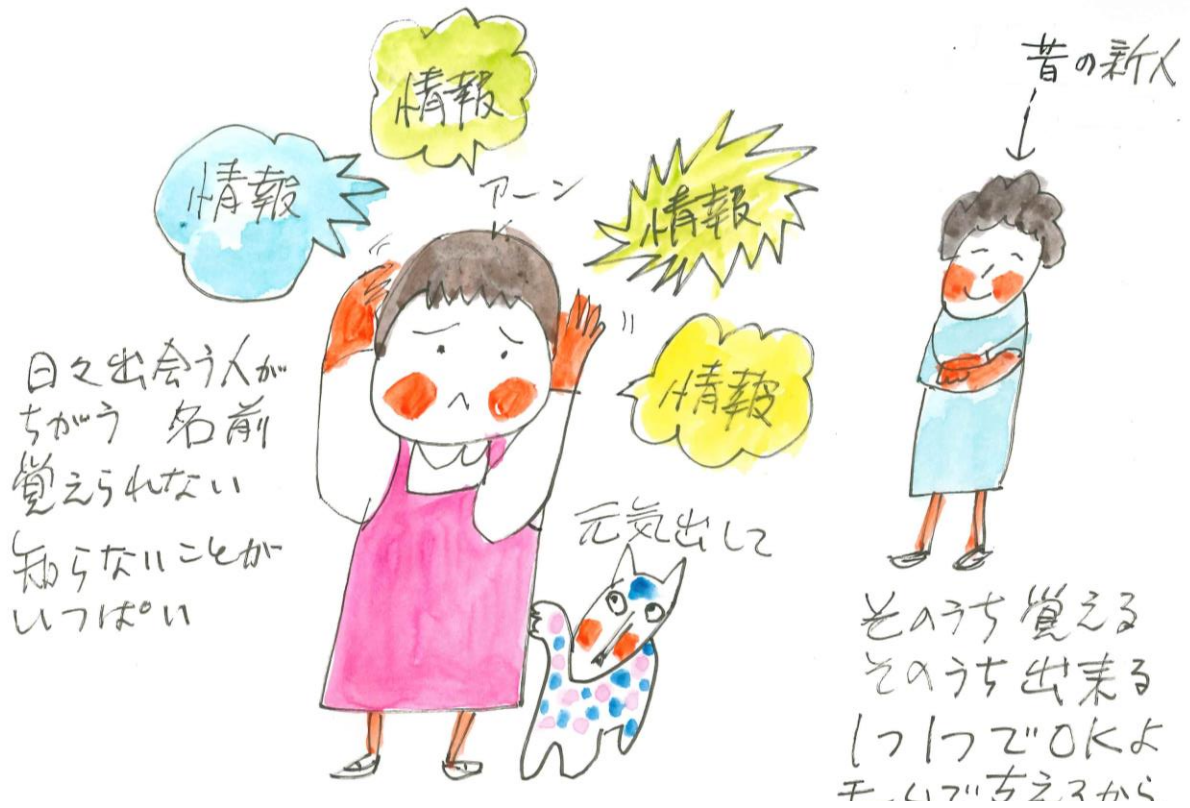 情報
情報
アーン
情報
情報
日々出会う人が
ちがう 名前
覚えられない
知らないことが
いっぱい
元気出して
昔の新人
そのうち覚える
そのうち出来る
1つ1つでOKよ
チームで支えるから